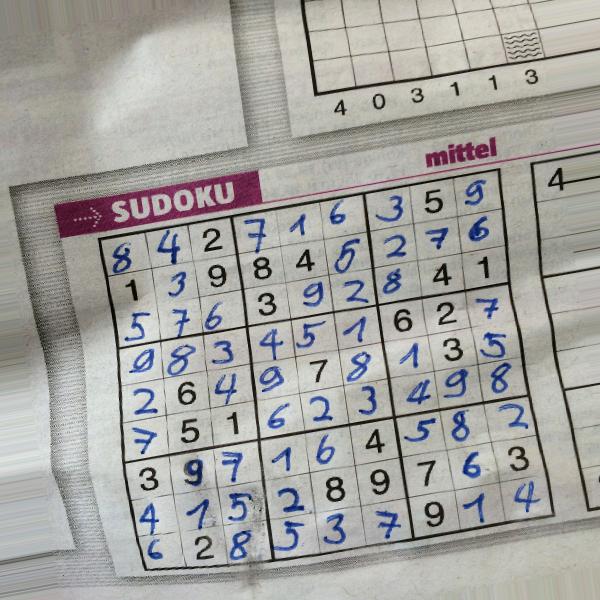 4 0 3 1 1 3
mittel
SUDOKU
4
8 4 2 7 1 6 3 5 9
1 3 9 8 4 5 2 7 6
5 7 6 3 9 2 8 4 1
9 8 3 4 5 1 6 2 7
2 6 4 9 7 8 1 3 5
7 5 1 6 2 3 4 9 8
3 9 7 1 6 4 5 8 2
4 1 5 2 8 9 7 6 3
6 2 8 5 3 7 9 1 4